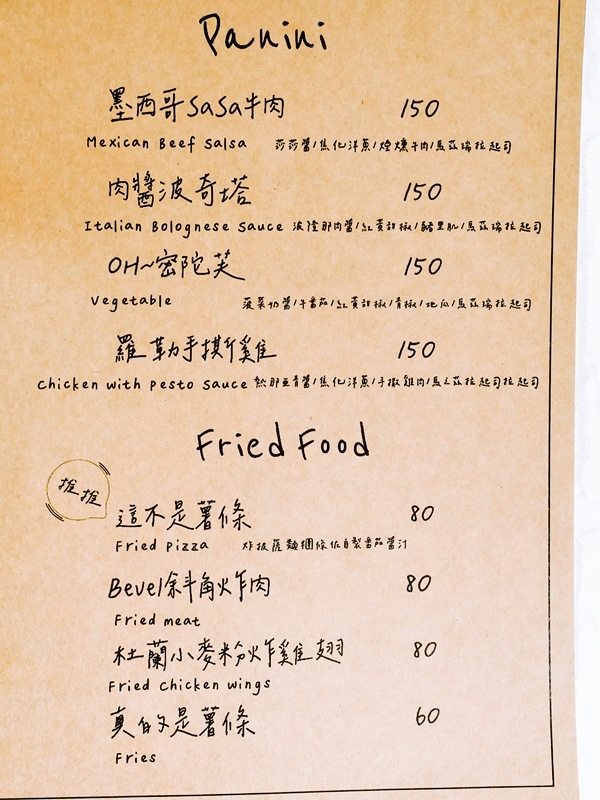 Panini
墨西哥SaSa牛肉 150
Mexican Beef Salsa 莎莎醬/焦化洋蔥/煙燻牛肉/馬茲瑞拉起司
肉醬波奇塔 150
Italian Bolognese Sauce 波隆那肉醬/紅黃甜椒/豬里肌/馬茲瑞拉起司
OH~密陀芙 150
Vegetable 菠菜奶醬/牛番茄/紅黃甜椒/青椒/地瓜/馬茲瑞拉起司
羅勒手撕雞 150
Chicken with Pesto Sauce 熱那亞青醬/焦化洋蔥/手撕雞肉/馬茲拉起司拉起司
Fried Food
推推
這不是薯條 80
Fried Pizza 炸披薩麵糰條佐自製番茄醬汁
Bevel斜角炸肉 80
Fried meat
杜蘭小麥粉炸雞翅 80
Fried Chicken wings
真的是薯條 60
Fries